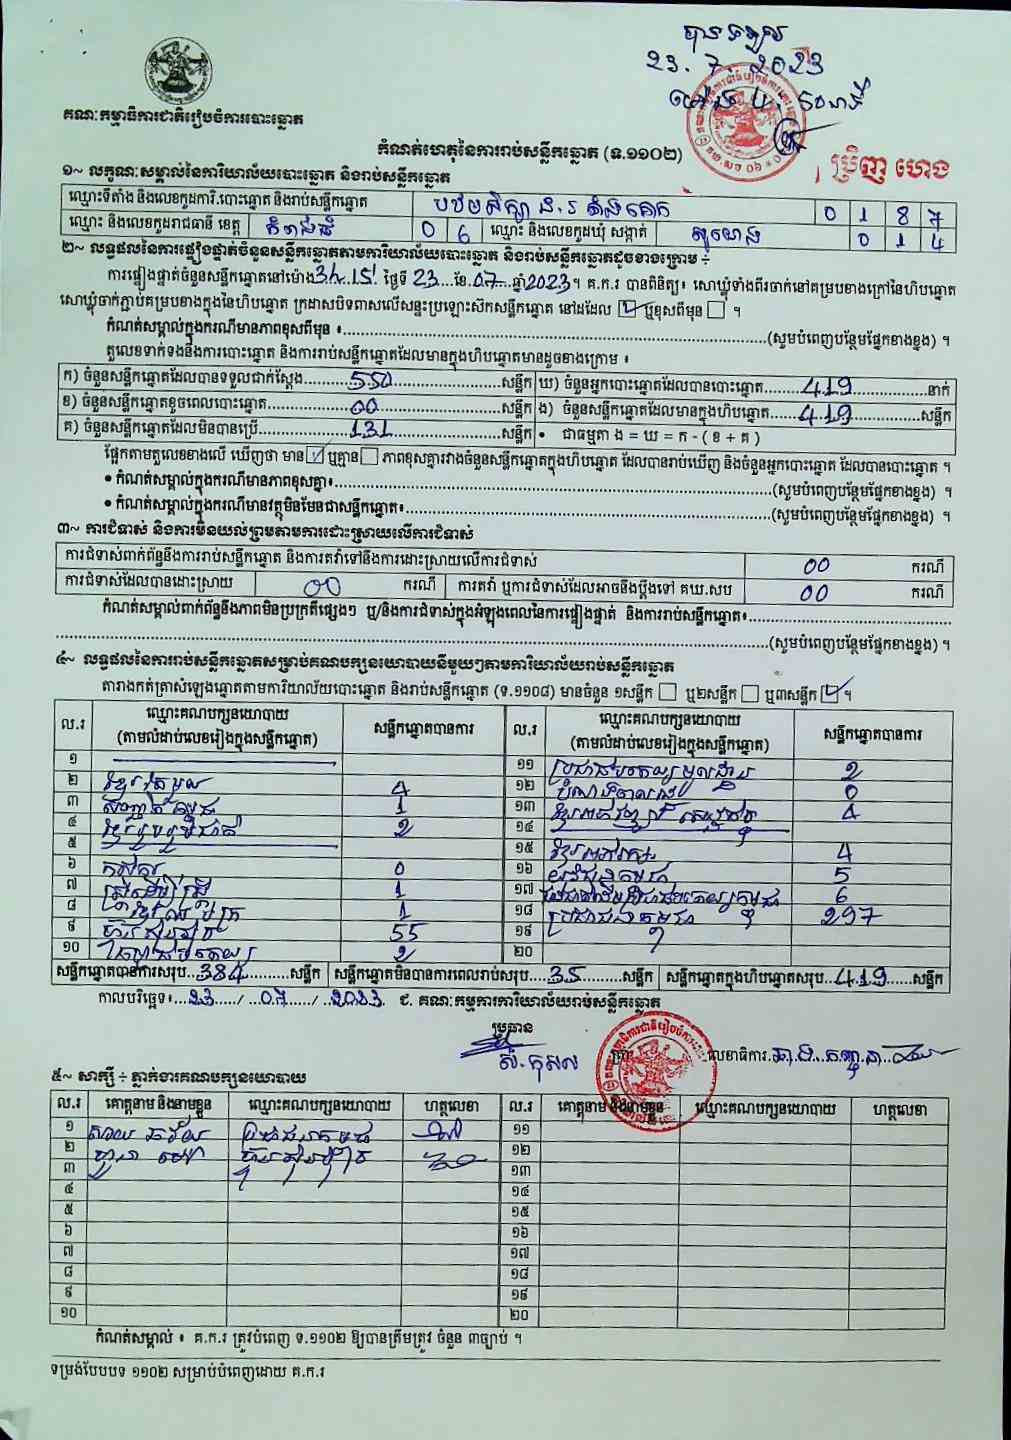 បានទទួល
23. 7. 2023
គណៈកម្មាធិការជាតិរៀបចំការបោះឆ្នោត
កំណត់ហេតុនៃការរាប់សន្លឹកឆ្នោត (ទ.១១០២)
ប្រិញ ហេង
១~ លក្ខណៈសម្គាល់នៃការិយាល័យបោះឆ្នោត និងរាប់សន្លឹកឆ្នោត
ឈ្មោះទីតាំង និងលេខកូដការិ.បោះឆ្នោត និងរាប់សន្លឹកឆ្នោត 0 1 8 7
ឈ្មោះ និងលេខកូដរាជធានី ខេត្ត កំពង់ធំ 0 6 ឈ្មោះ និងលេខកូដឃុំ សង្កាត់ 0 1 4
២~ លទ្ធផលនៃការផ្ទៀងផ្ទាត់ចំនួនសន្លឹកឆ្នោតតាមការិយាល័យបោះឆ្នោត និងរាប់សន្លឹកឆ្នោតដូចខាងក្រោម ÷
ការផ្ទៀងផ្ទាត់ចំនួនសន្លឹកឆ្នោតនៅម៉ោង 3h.15' ថ្ងៃទី 23 ខែ 07 ឆ្នាំ 2023។ គ.ក.រ បានពិនិត្យ៖ សោឃ្លុំទាំងពីរចាក់នៅគម្របខាងក្រៅនៃហិបឆ្នោត
សោឃ្លុំចាក់ភ្ជាប់គម្របខាងក្នុងនៃហិបឆ្នោត ក្រដាសបិទពាសលើសន្ទះប្រឡោះស៊កសន្លឹកឆ្នោត នៅដដែល ☑ ឬខុសពីមុន ☐ ។
កំណត់សម្គាល់ក្នុងករណីមានភាពខុសពីមុន ៖ (សូមបំពេញបន្ថែមផ្នែកខាងខ្នង) ។
តួលេខទាក់ទងនឹងការបោះឆ្នោត និងការរាប់សន្លឹកឆ្នោតដែលមានក្នុងហិបឆ្នោតមានដូចខាងក្រោម ៖
ក) ចំនួនសន្លឹកឆ្នោតដែលបានទទួលជាក់ស្តែង 550 សន្លឹក ឃ) ចំនួនអ្នកបោះឆ្នោតដែលបានបោះឆ្នោត 419 នាក់
ខ) ចំនួនសន្លឹកឆ្នោតខូចពេលបោះឆ្នោត 00 សន្លឹក ង) ចំនួនសន្លឹកឆ្នោតដែលមានក្នុងហិបឆ្នោត 419 សន្លឹក
គ) ចំនួនសន្លឹកឆ្នោតដែលមិនបានប្រើ 131 សន្លឹក • ជាធម្មតា ង = ឃ = ក - ( ខ + គ )
ផ្អែកតាមតួលេខខាងលើ ឃើញថា មាន ☑ ឬគ្មាន ☐ ភាពខុសគ្នារវាងចំនួនសន្លឹកឆ្នោតក្នុងហិបឆ្នោត ដែលបានរាប់ឃើញ និងចំនួនអ្នកបោះឆ្នោត ដែលបានបោះឆ្នោត ។
• កំណត់សម្គាល់ក្នុងករណីមានភាពខុសគ្នា៖ (សូមបំពេញបន្ថែមផ្នែកខាងខ្នង) ។
• កំណត់សម្គាល់ក្នុងករណីមានវត្ថុមិនមែនជាសន្លឹកឆ្នោត៖ (សូមបំពេញបន្ថែមផ្នែកខាងខ្នង) ។
៣~ ការជំទាស់ និងការមិនយល់ព្រមតាមការដោះស្រាយលើការជំទាស់
ការជំទាស់ពាក់ព័ន្ធនឹងការរាប់សន្លឹកឆ្នោត និងការតវ៉ាទៅនឹងការដោះស្រាយលើការជំទាស់ 00 ករណី
ការជំទាស់ដែលបានដោះស្រាយ 00 ករណី ការតវ៉ា ឬការជំទាស់ដែលអាចនឹងប្តឹងទៅ គឃ.សប 00 ករណី
កំណត់សម្គាល់ពាក់ព័ន្ធនឹងភាពមិនប្រក្រតីផ្សេងៗ ឬ/និងការជំទាស់ក្នុងអំឡុងពេលនៃការផ្ទៀងផ្ទាត់ និងការរាប់សន្លឹកឆ្នោត៖
(សូមបំពេញបន្ថែមផ្នែកខាងខ្នង) ។
៤~ លទ្ធផលនៃការរាប់សន្លឹកឆ្នោតសម្រាប់គណបក្សនយោបាយនីមួយៗតាមការិយាល័យរាប់សន្លឹកឆ្នោត
តារាងកត់ត្រាសំឡេងឆ្នោតតាមការិយាល័យបោះឆ្នោត និងរាប់សន្លឹកឆ្នោត (ទ.១១០៨) មានចំនួន ១សន្លឹក ☐ ឬ២សន្លឹក ☐ ឬ៣សន្លឹក ☑ ។
ល.រ ឈ្មោះគណបក្សនយោបាយ (តាមលំដាប់លេខរៀងក្នុងសន្លឹកឆ្នោត) សន្លឹកឆ្នោតបានការ ល.រ ឈ្មោះគណបក្សនយោបាយ (តាមលំដាប់លេខរៀងក្នុងសន្លឹកឆ្នោត) សន្លឹកឆ្នោតបានការ
១ ១១ 2
២ 4 ១២ 0
៣ 1 ១៣ 4
៤ 2 ១៤
៥ ១៥ 4
៦ 0 ១៦ 5
៧ 1 ១៧ 6
៨ 1 ១៨ ប្រជាជនកម្ពុជា 297
៩ 55 ១៩
១០ 2 ២០
សន្លឹកឆ្នោតបានការសរុប 384 សន្លឹក សន្លឹកឆ្នោតមិនបានការពេលរាប់សរុប 35 សន្លឹក សន្លឹកឆ្នោតក្នុងហិបឆ្នោតសរុប 419 សន្លឹក
កាលបរិច្ឆេទ៖ 23 / 07 / 2023 ជ. គណៈកម្មការការិយាល័យរាប់សន្លឹកឆ្នោត
ប្រធាន
លេខាធិការ
៥~ សាក្សី ÷ ភ្នាក់ងារគណបក្សនយោបាយ
ល.រ គោត្តនាម និងនាមខ្លួន ឈ្មោះគណបក្សនយោបាយ ហត្ថលេខា ល.រ គោត្តនាម និងនាមខ្លួន ឈ្មោះគណបក្សនយោបាយ ហត្ថលេខា
១ ប្រជាជនកម្ពុជា ១១
២ ១២
៣ ១៣
៤ ១៤
៥ ១៥
៦ ១៦
៧ ១៧
៨ ១៨
៩ ១៩
១០ ២០
កំណត់សម្គាល់ ៖ គ.ក.រ ត្រូវបំពេញ ទ.១១០២ ឱ្យបានត្រឹមត្រូវ ចំនួន ៣ច្បាប់ ។
ទម្រង់បែបបទ ១១០២ សម្រាប់បំពេញដោយ គ.ក.រ